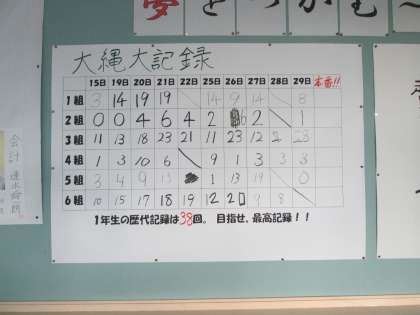 夢をつかむ~
大縄大記録
15日 19日 20日 21日 22日 25日 26日 27日 28日 29日 本番!!
1組 3 14 19 19 14 9 14 8
2組 0 0 4 6 4 2 2 1
3組 11 13 18 23 21 11 23 12 2 23
4組 1 3 10 6 9 1 3 3 3
5組 3 4 9 13 1 13 19 0
6組 10 15 17 18 19 12 20 9 8
1年生の歴代記録は38回。 目指せ、最高記録!!
会計